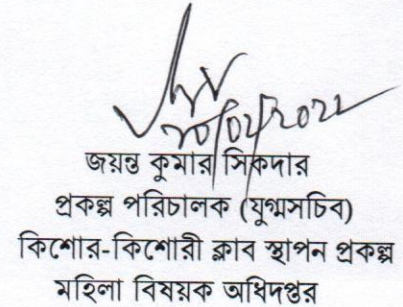 20/02/2022
জয়ন্ত কুমার সিকদার
প্রকল্প পরিচালক (যুগ্মসচিব)
কিশোর-কিশোরী ক্লাব স্থাপন প্রকল্প
মহিলা বিষয়ক অধিদপ্তর